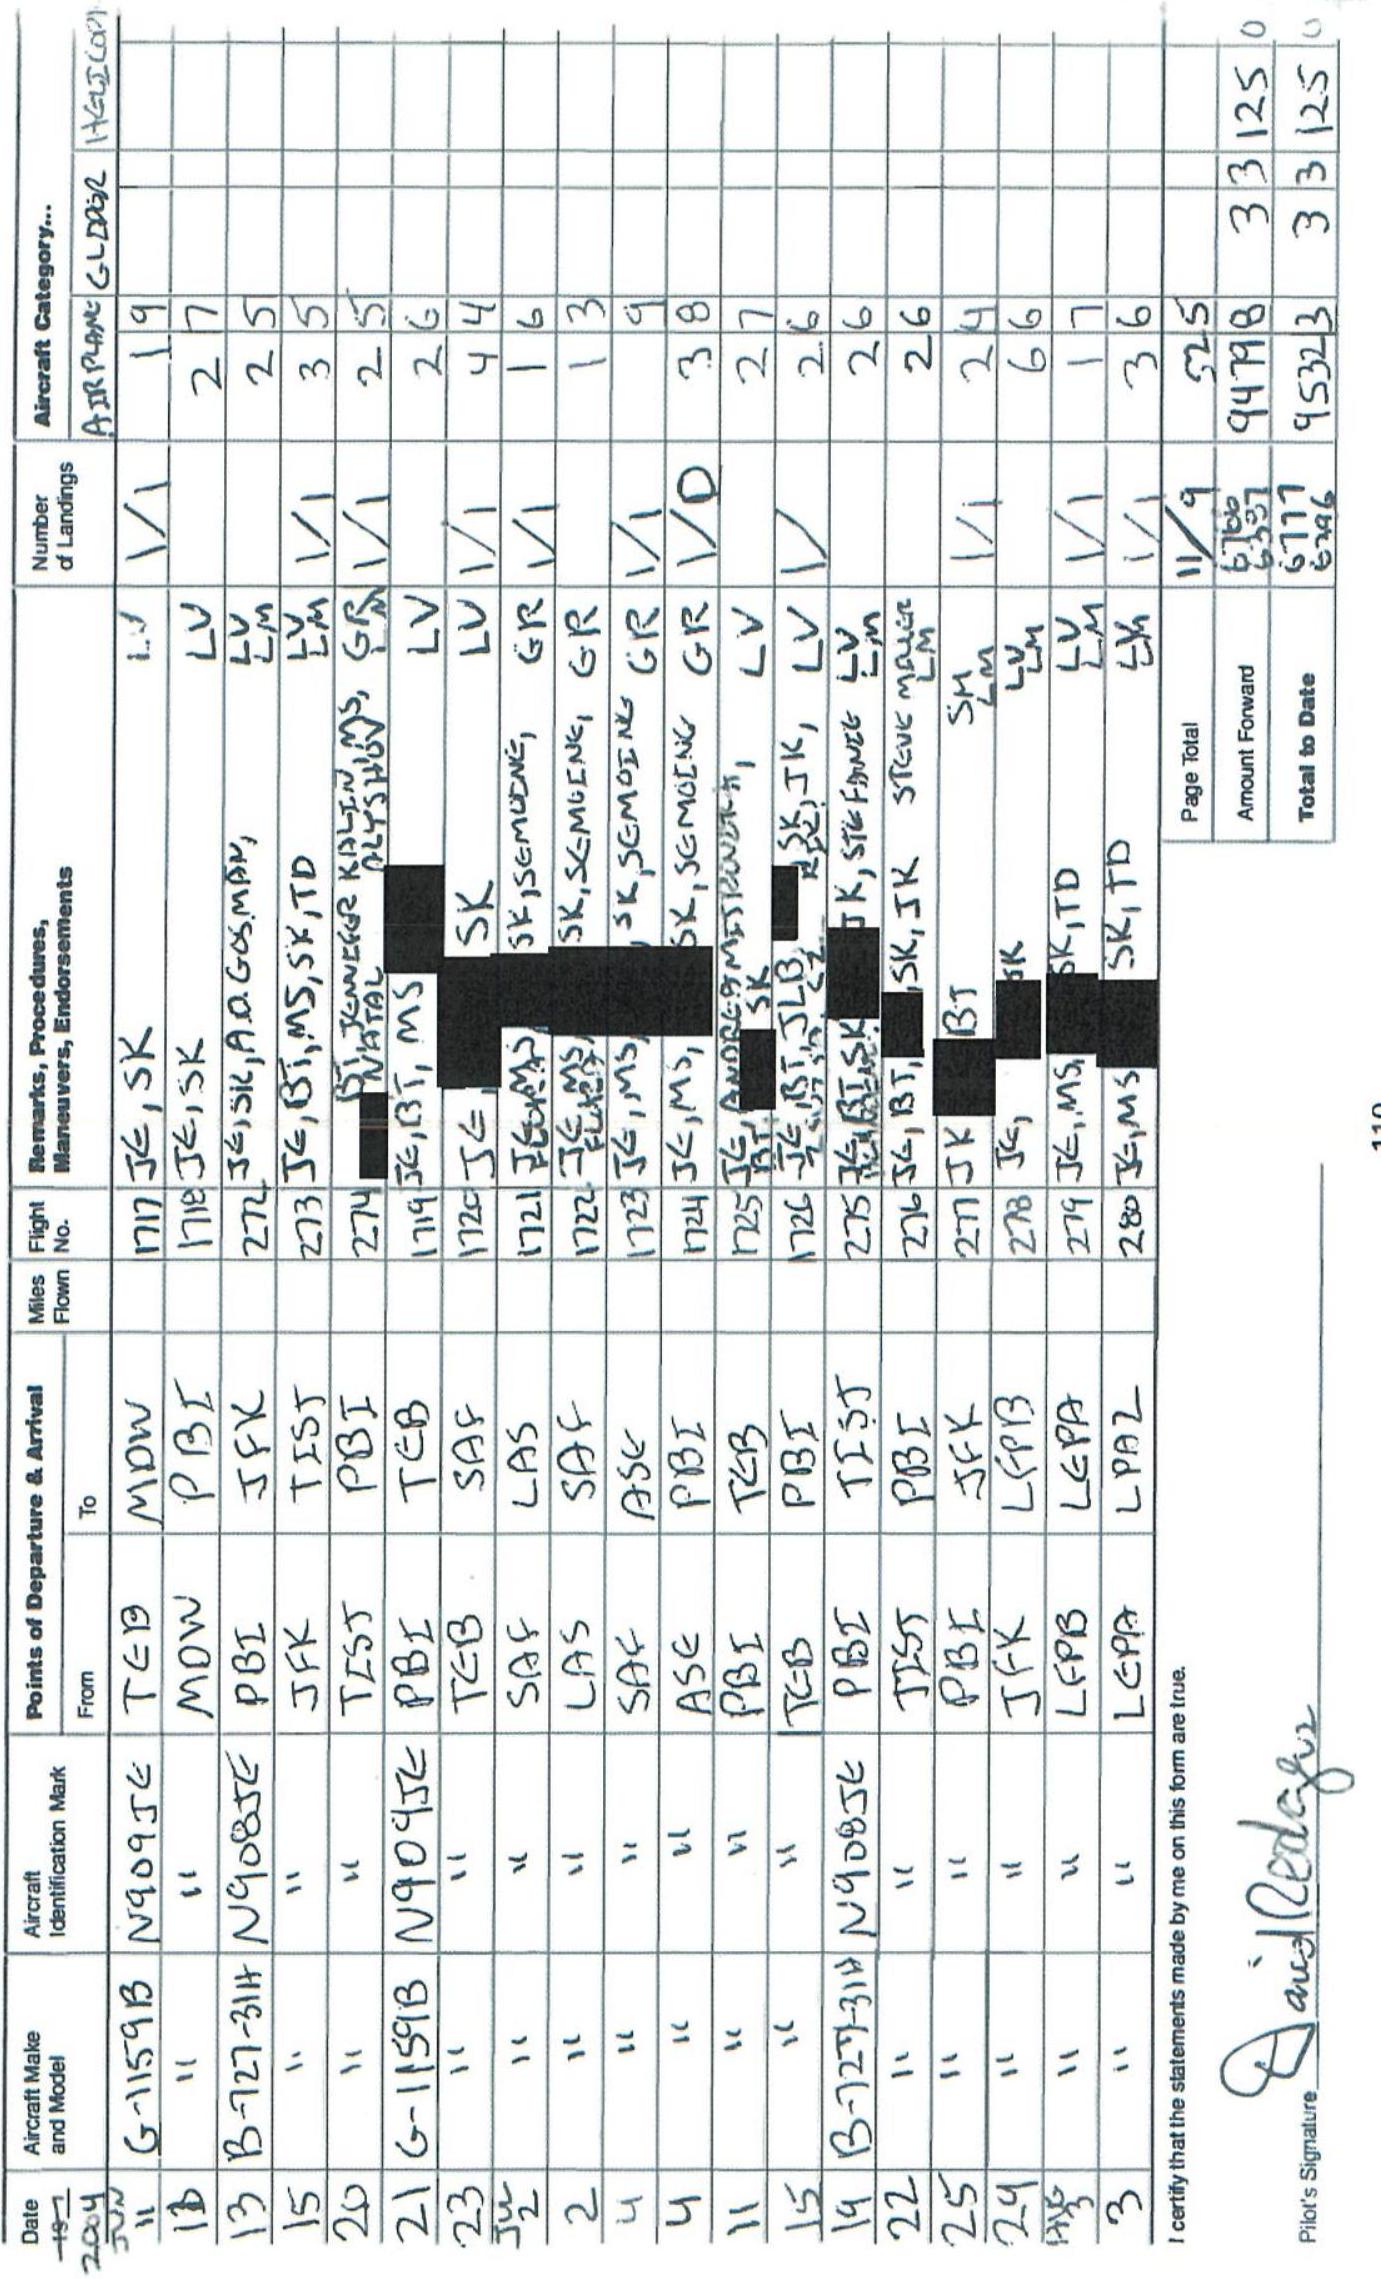 Date Aircraft Make and Model Aircraft Identification Mark Points of Departure & Arrival From To Miles Flown Flight No. Remarks, Procedures, Maneuvers, Endorsements Number of Landings Aircraft Category...
2004 AIRPLANE GLIDER
JUN 11 G-1159B N909JE TEB MDW 1717 JE, SK LV 1/1 1 9
" " MDW PBI 1718 JE, SK LV 2 7
13 B-727-31H N908JE PBI JFK 272 JE, SK, A.D. GOSMAN, LV LM 2 5
15 " " JFK TIST 273 JE, BT, MS, SK, TD LV LM 1/1 3 5
20 " " TIST PBI 274 BT, JENNIFER KALIN, MS, NATAL GR 1/1 2 5
21 G-1159B N909JE PBI TEB 1719 JE, BT, MS LV 2 6
23 " " TEB SAF 1720 JE, SK LV 1/1 4 4
JUL 2 " " SAF LAS 1721 JE, MS, SK, SEMOINE, GR 1/1 1 6
2 " " LAS SAF 1722 JE, MS, SK, SEMOINE, GR 1 3
4 " " SAF ASE 1723 JE, MS, SK, SEMOING GR 1/1 9
4 " " ASE PBI 1724 JE, MS, SK, SEMOING GR 1/D 3 8
11 " " PBI TEB 1725 JE, BT SK LV 2 7
15 " " TEB PBI 1726 JE, BT, JLB, SK, JK, LV 1/ 2 6
19 B-727-31H N908JE PBI TIST 275 JE, BT, SK JK, STEFANIE LV LM 2 6
22 " " TIST PBI 276 JE, BT, SK, JK STEVE LM 2 6
25 " " PBI JFK 277 JK BT SM LM 1/1 2 4
29 " " JFK LFPB 278 JE, SK LV LM 6 6
AUG 3 " " LFPB LEPA 279 JE, MS, SK, TD LV LM 1/1 1 7
3 " " LEPA LPAZ 280 JE, MS SK, TD 1/1 3 6
I certify that the statements made by me on this form are true.
Page Total 11/9 52 5
Amount Forward 9479 8 3 3 125 0
Total to Date 6777 9532 3 3 3 125 0
Pilot's Signature